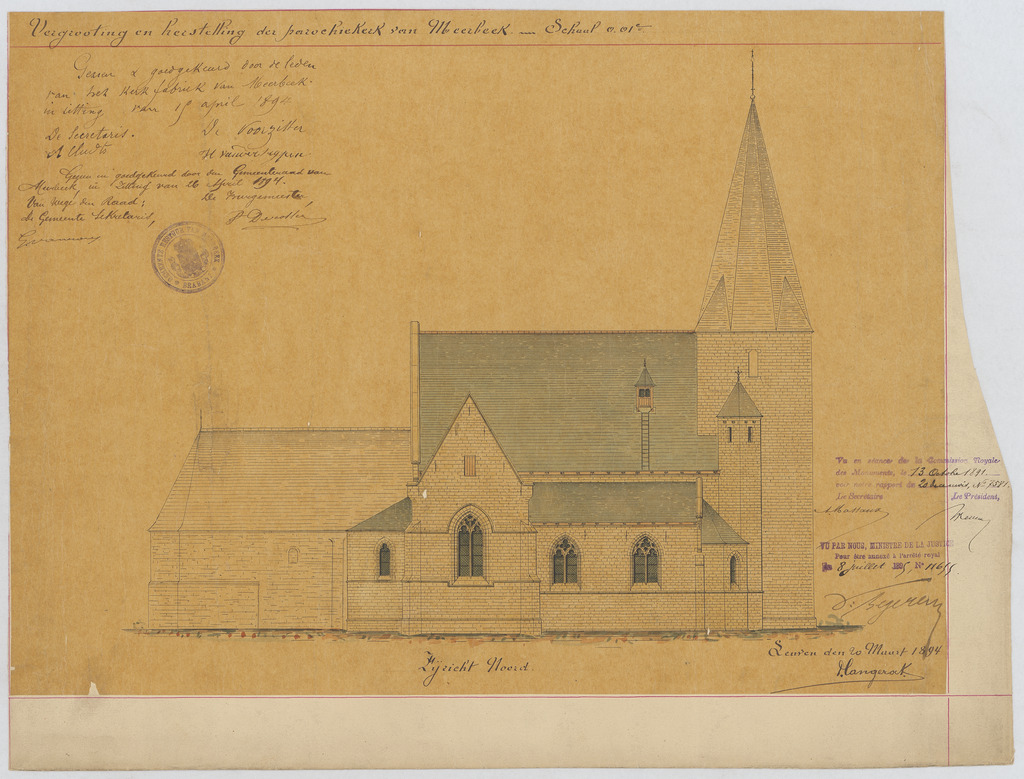 Vergrooting en herstelling der parochiekerk van Meerbeek Schaal 0.01e
Gezien & goedgekeurd door de leden
van het Kerk fabriek van Meerbeek
in zitting van 19 april 1894
De Secretaris. De Voorzitter
Gezien en goedgekeurd door den Gemeenteraad van
Meerbeek, in Zitting van 26 April 1894.
Van wege den Raad:
De Burgemeester,
de Gemeente Sekretaris,
BRABANT
Vu en séance de la Commission Royale
des Monuments, le 13 Octobre 1894
voir notre rapport du 20 de ce mois, N°
Le Secrétaire Le Président,
VU PAR NOUS, MINISTRE DE LA JUSTICE
Pour être annexé à l'arrêté royal
du 8 juillet 1895 N°
Leuven den 20 Maart 1894
Langerock
Zijzicht Noord